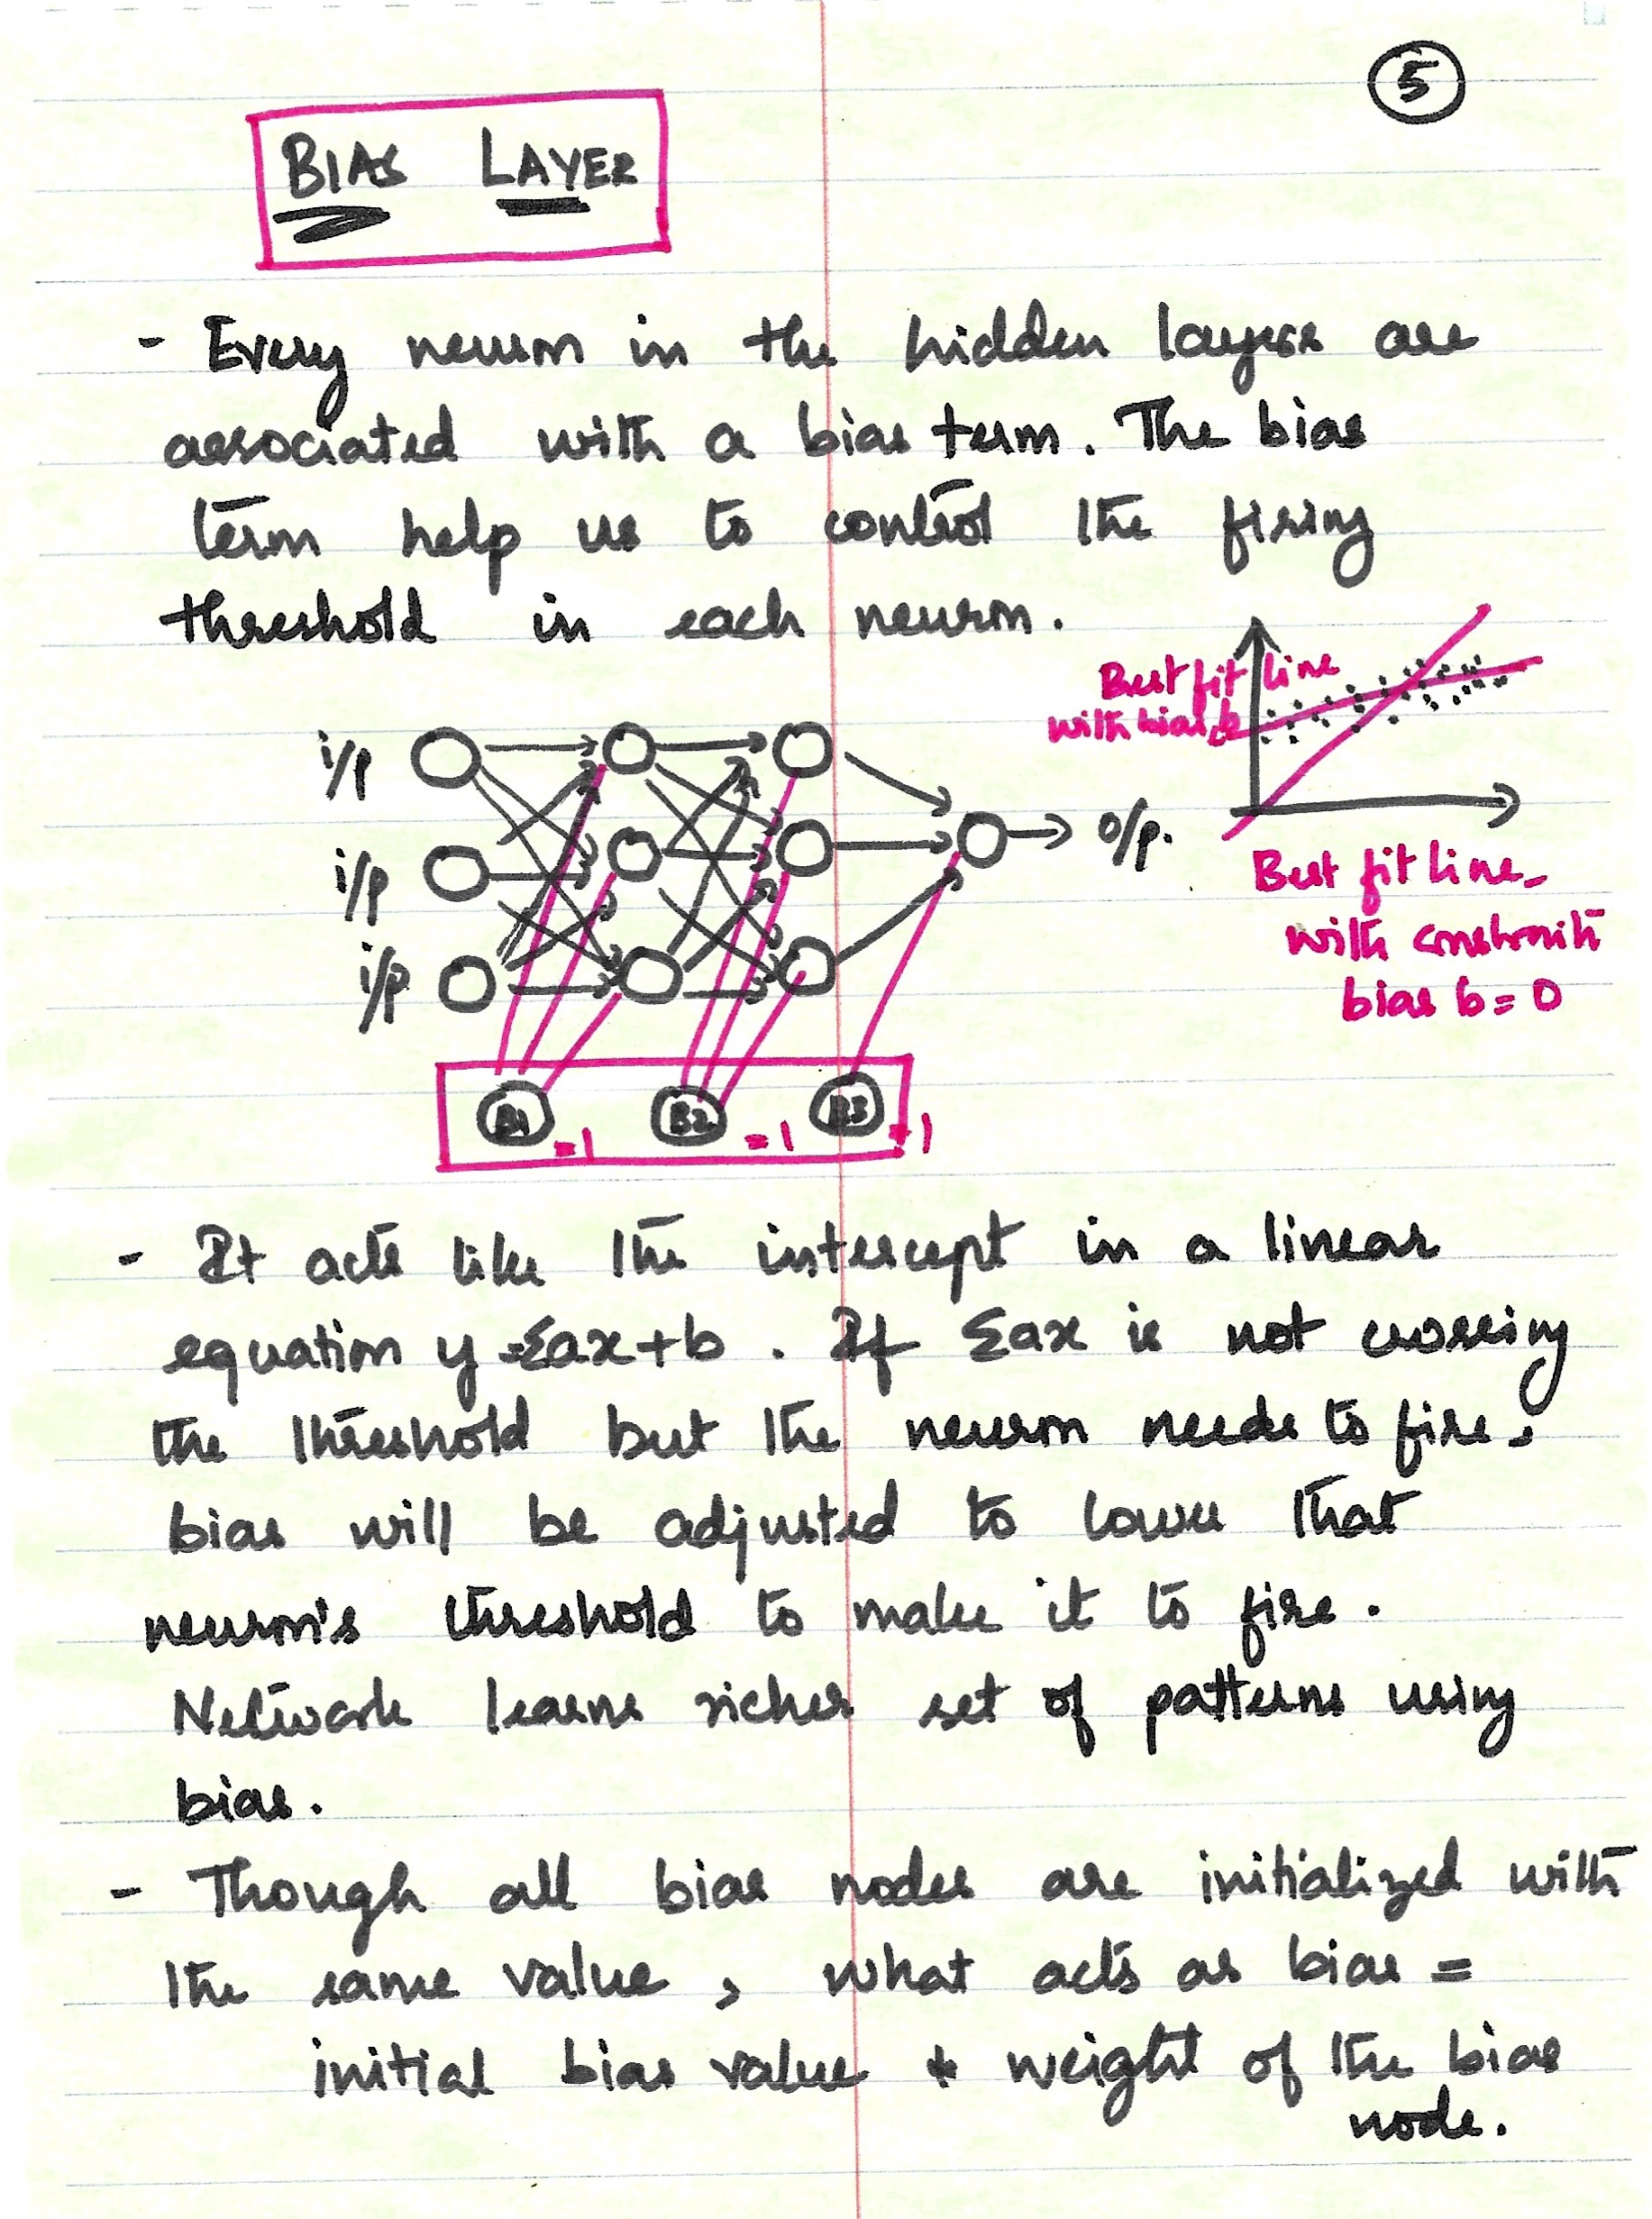 5
BIAS LAYER
- Every neuron in the hidden layers are
associated with a bias term. The bias
term help us to control the firing
threshold in each neuron.
Best fit line
with bias b
i/p
i/p
i/p
o/p.
Best fit line
with constraint
bias b = 0
B1 = 1 B2 = 1 B3 = 1
- It acts like the intercept in a linear
equation y = Σax + b . If Σax is not crossing
the threshold but the neuron needs to fire,
bias will be adjusted to lower that
neuron's threshold to make it to fire.
Network learns richer set of patterns using
bias.
- Though all bias nodes are initialized with
the same value, what acts as bias =
initial bias value * weight of the bias
node.